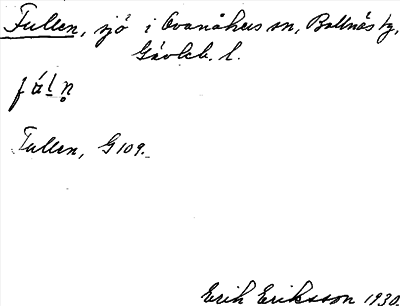 Fullen, sjö i Ovanåkers sn, Bollnäs tg,
Gävleb. l.
fúln̥
Fullen, G 109.
Erik Eriksson 1930.